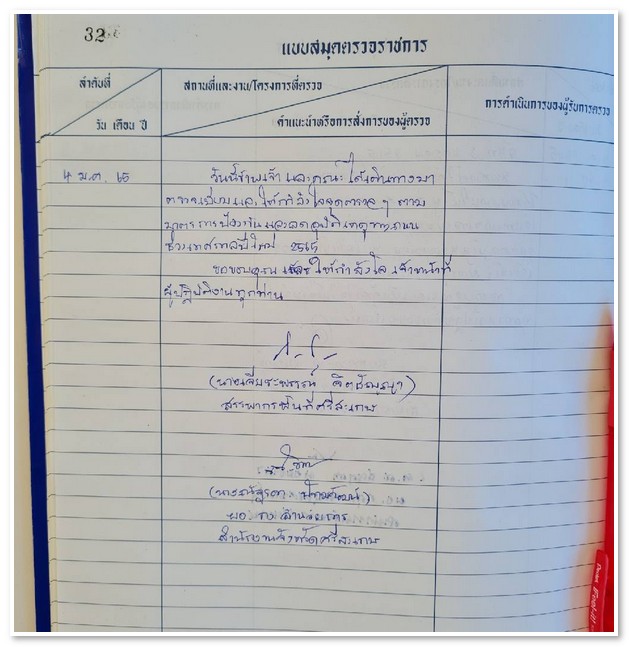 32
แบบสมุดตรวจราชการ
ลำดับที่
วัน เดือน ปี
สถานที่และงาน/โครงการที่ตรวจ
คำแนะนำหรือการสั่งการของผู้ตรวจ
การดำเนินการของผู้รับการตรวจ
4 ม.ค. 65
วันนี้ข้าพเจ้า และคณะ ได้เดินทางมา
ตรวจเยี่ยมและให้กำลังใจจุดตรวจ ๆ ตาม
มาตรการป้องกันและลดอุบัติเหตุทางถนน
ช่วงเทศกาลปีใหม่ 2565
ขอขอบคุณ และให้กำลังใจ เจ้าหน้าที่
ผู้ปฏิบัติงานทุกท่าน
จิตปัญญา)
สรรพากรพื้นที่ศรีสะเกษ
ผอ.
สำนักงานจังหวัดศรีสะเกษ